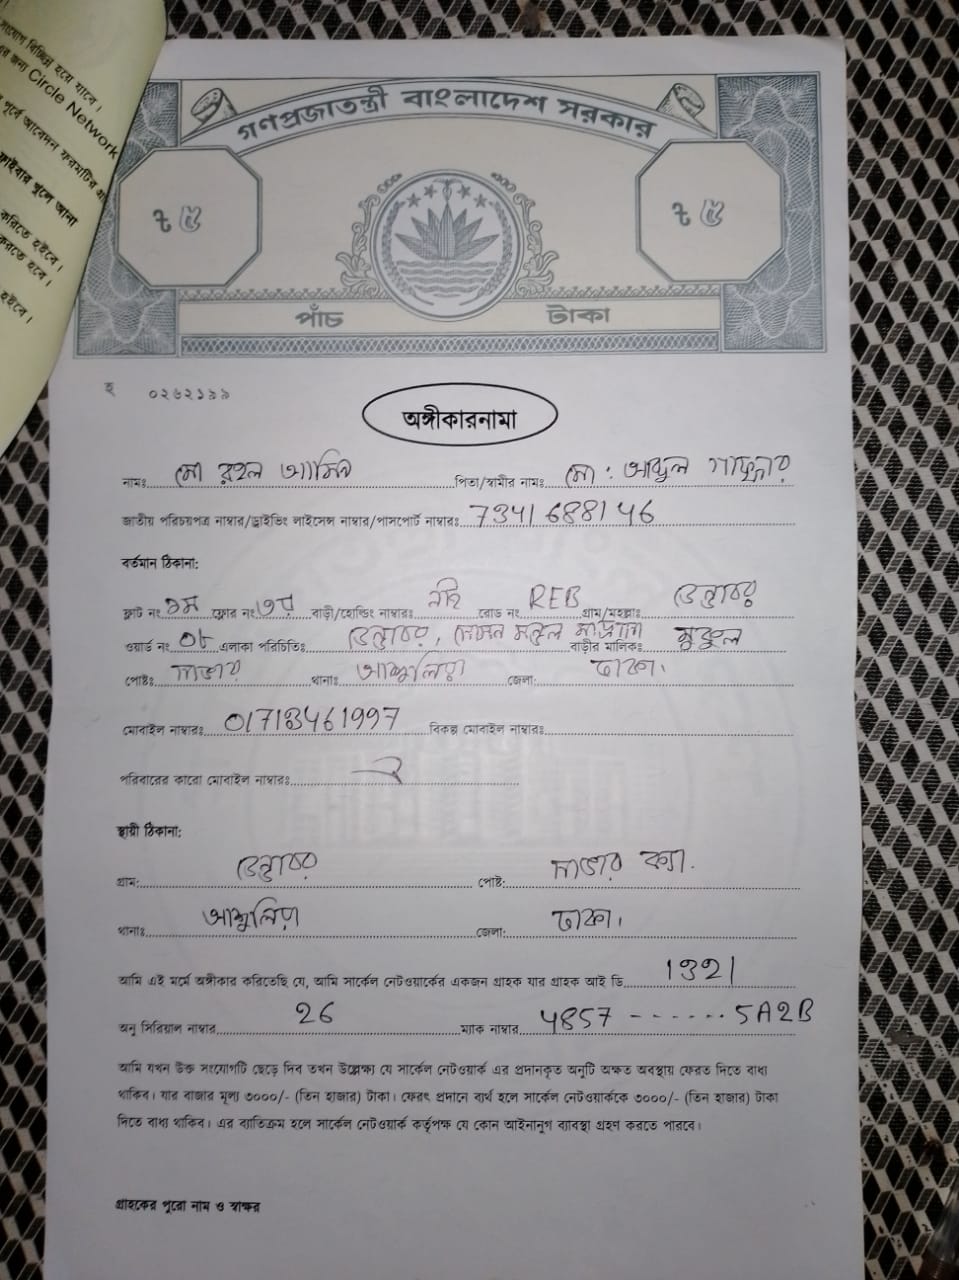 সংযোগ বিচ্ছিন্ন হয়ে যাবে।
জন্য Circle Network
পূর্বে আবেদন ফরমটির
ফাইবার খুলে আনা
করিতে হইবে।
করতে হবে।
হইবে।
গণপ্রজাতন্ত্রী বাংলাদেশ সরকার
৳ ৫ ৳ ৫
পাঁচ টাকা
হ ০২৬২১৯৯
অঙ্গীকারনামা
নামঃ মো রহুল আমিন পিতা/স্বামীর নামঃ মো: আব্দুল গাফ্ফার
জাতীয় পরিচয়পত্র নাম্বার/ড্রাইভিং লাইসেন্স নাম্বার/পাসপোর্ট নাম্বারঃ 7341688146
বর্তমান ঠিকানা:
ফ্লাট নং ১ম ফ্লোর নং ৩য় বাড়ী/হোল্ডিং নাম্বারঃ নাই রোড নং REB গ্রাম/মহল্লাঃ
ওয়ার্ড নং ০৮ এলাকা পরিচিতিঃ বাড়ীর মালিকঃ মুকুল
পোষ্টঃ সাভার থানাঃ আশুলিয়া জেলা: ঢাকা।
মোবাইল নাম্বারঃ 01718461997 বিকল্প মোবাইল নাম্বারঃ
পরিবারের কারো মোবাইল নাম্বারঃ
স্থায়ী ঠিকানা:
গ্রাম: পোষ্ট: সাভার ক্যা.
থানাঃ আশুলিয়া জেলা: ঢাকা।
আমি এই মর্মে অঙ্গীকার করিতেছি যে, আমি সার্কেল নেটওয়ার্কের একজন গ্রাহক যার গ্রাহক আই ডি 1321
অনু সিরিয়াল নাম্বার 26 ম্যাক নাম্বার 4857 ------ 5A2B
আমি যখন উক্ত সংযোগটি ছেড়ে দিব তখন উল্লেক্ষ্য যে সার্কেল নেটওয়ার্ক এর প্রদানকৃত অনুটি অক্ষত অবস্থায় ফেরত দিতে বাধ্য
থাকিব। যার বাজার মূল্য ৩০০০/- (তিন হাজার) টাকা। ফেরৎ প্রদানে ব্যর্থ হলে সার্কেল নেটওয়ার্ককে ৩০০০/- (তিন হাজার) টাকা
দিতে বাধ্য থাকিব। এর ব্যাতিক্রম হলে সার্কেল নেটওয়ার্ক কর্তৃপক্ষ যে কোন আইনানুগ ব্যাবস্থা গ্রহণ করতে পারবে।
গ্রাহকের পুরো নাম ও স্বাক্ষর